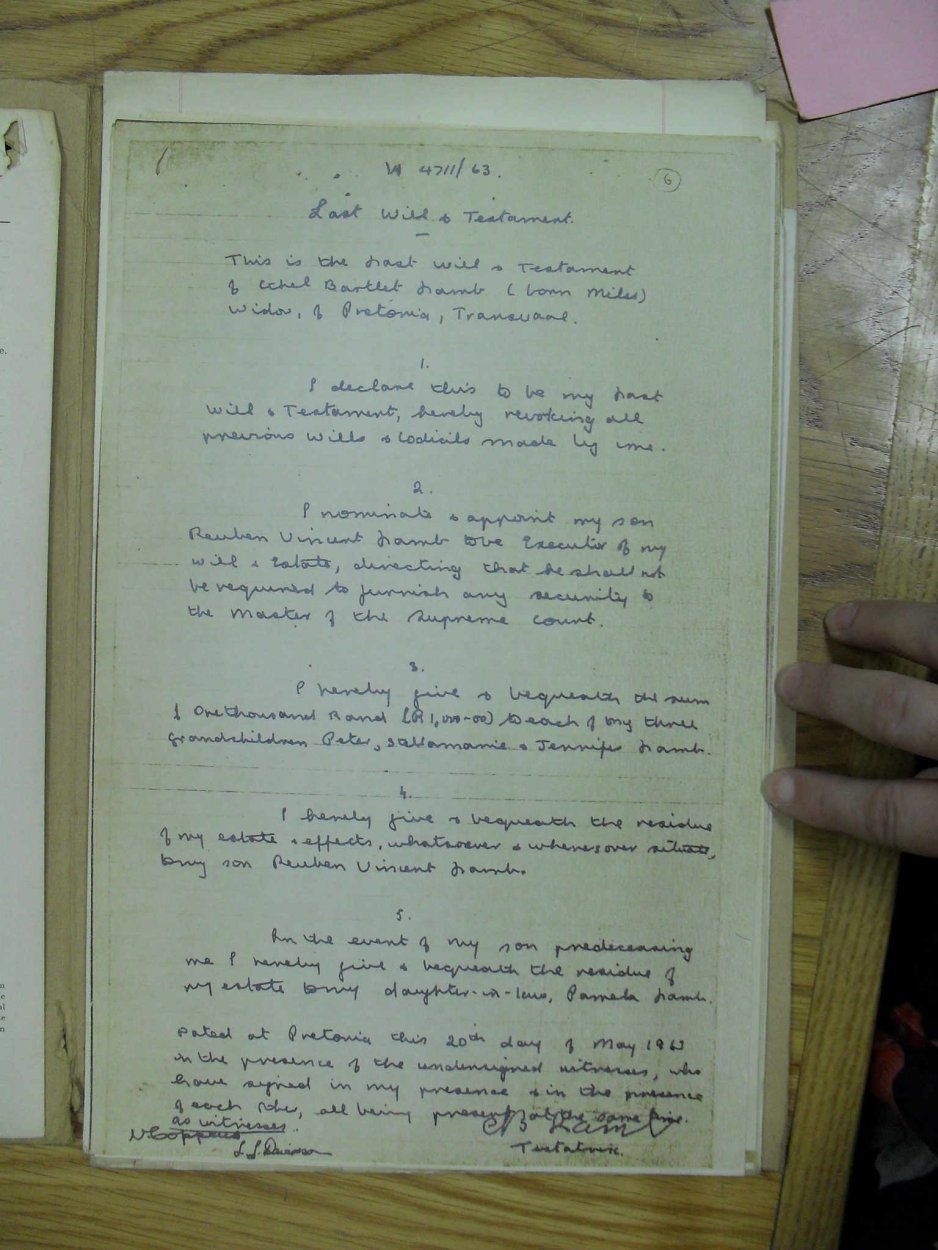 W 4711/63.
6
Last Will & Testament.
This is the Last Will & Testament
of Ethel Bartlet Lamb (born Miles)
Widow, of Pretoria, Transvaal.
1.
I declare this to be my Last
Will & Testament, hereby revoking all
previous Wills & Codicils made by me.
2.
I nominate & appoint my son
Reuben Vincent Lamb to be Executor of my
will & Estate, directing that he shall not
be required to furnish any security to
the Master of the Supreme Court.
3.
I hereby give & bequeath the sum
of One thousand Rand (R1,000-00) to each of my three
grandchildren Peter, Stellamarie & Jennifer Lamb.
4.
I hereby give & bequeath the residue
of my estate & effects, whatsoever & wheresoever situate,
to my son Reuben Vincent Lamb.
5.
In the event of my son predeceasing
me I hereby give & bequeath the residue of
my estate to my daughter-in-law, Pamela Lamb.
Dated at Pretoria this 20th day of May 1963
in the presence of the undersigned witnesses, who
have signed in my presence & in the presence
of each other, all being present at the same time.
as witnesses.
EB Lamb
Testatrix.